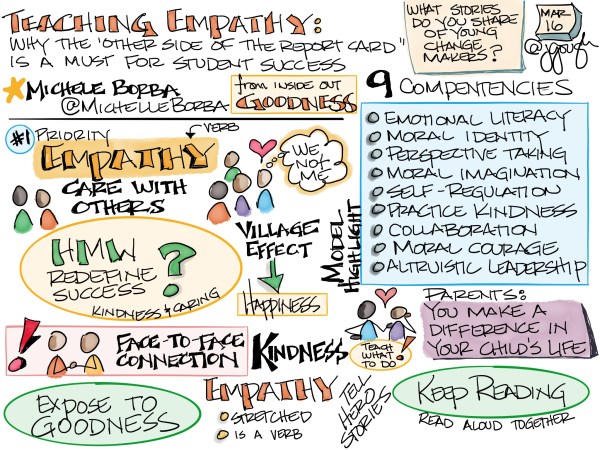 TEACHING EMPATHY:
WHY THE "OTHER SIDE OF THE REPORT CARD"
IS A MUST FOR STUDENT SUCCESS
WHAT STORIES
DO YOU SHARE
OF YOUNG
CHANGE
MAKERS?
MAR
16
@jgough
MICHELE BORBA
@MICHELLEBORBA
from INSIDE OUT
GOODNESS
9 COMPENTENCIES
EMOTIONAL LITERACY
MORAL IDENTITY
PERSPECTIVE TAKING
MORAL IMAGINATION
SELF-REGULATION
PRACTICE KINDNESS
COLLABORATION
MORAL COURAGE
ALTRUISTIC LEADERSHIP
#1 PRIORITY
VERB
EMPATHY
CARE WITH
OTHERS
WE,
NOT
ME
MODEL
HIGHLIGHT
HMW
REDEFINE
SUCCESS
?
KINDNESS & CARING
VILLAGE
EFFECT
HAPPINESS
PARENTS:
YOU MAKE A
DIFFERENCE IN
YOUR CHILD'S LIFE
! FACE-TO-FACE
CONNECTION
KINDNESS
TEACH
WHAT
TO DO!
EXPOSE TO
GOODNESS
EMPATHY
STRETCHED
IS A VERB
TELL
HERO
STORIES
KEEP READING
READ ALOUD TOGETHER